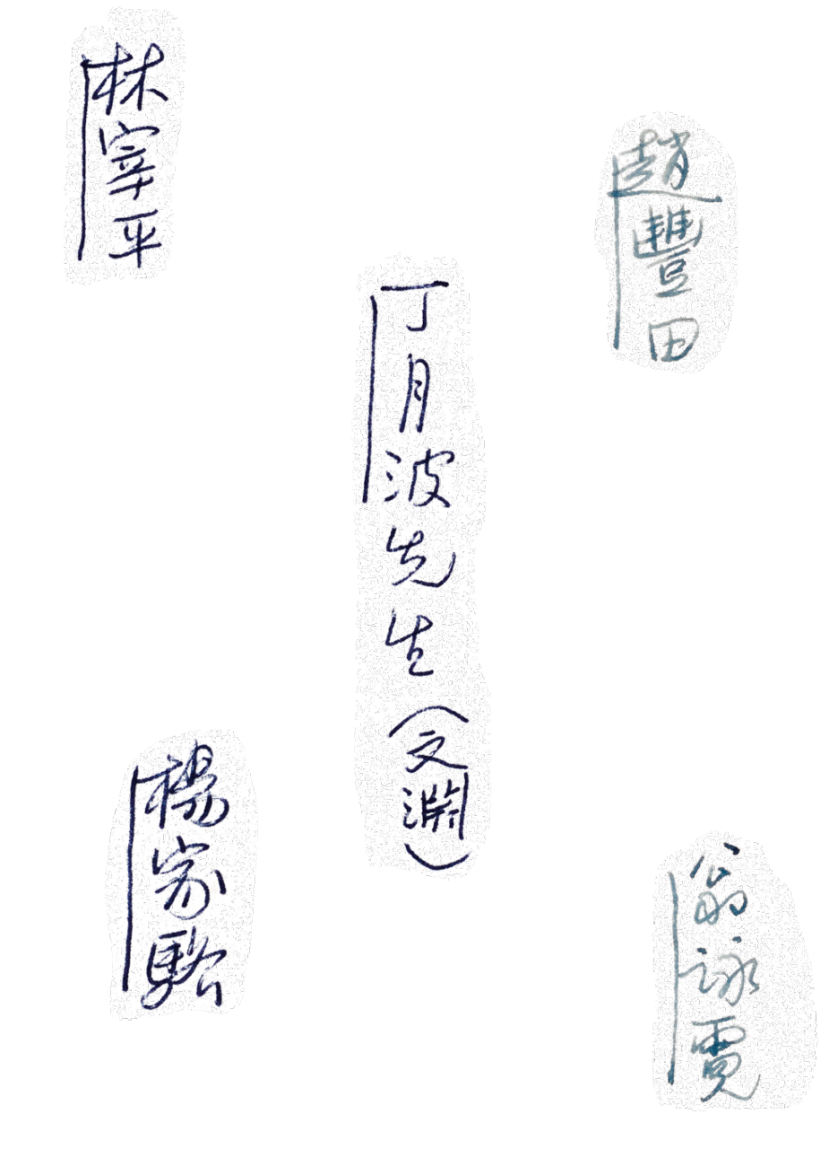 趙豐田
翁詠霓
丁月波先生(文淵)
林宰平
楊家駱